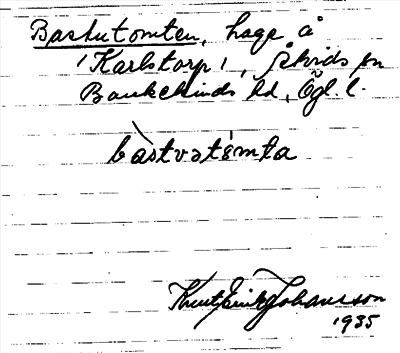 Bastutomten, hage å
'Karlstorp', Åtvids sn
Bankekinds hd, Ögl. l.
bàstvət𝑜̀mta
Knut Erik Johansson
1935